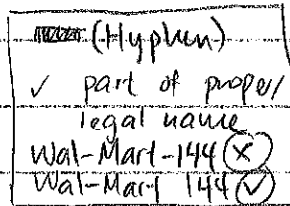 (Hyphen)
✓ part of proper
legal name
Wal-Mart-144 ⓧ
Wal-Mart 144 ✓